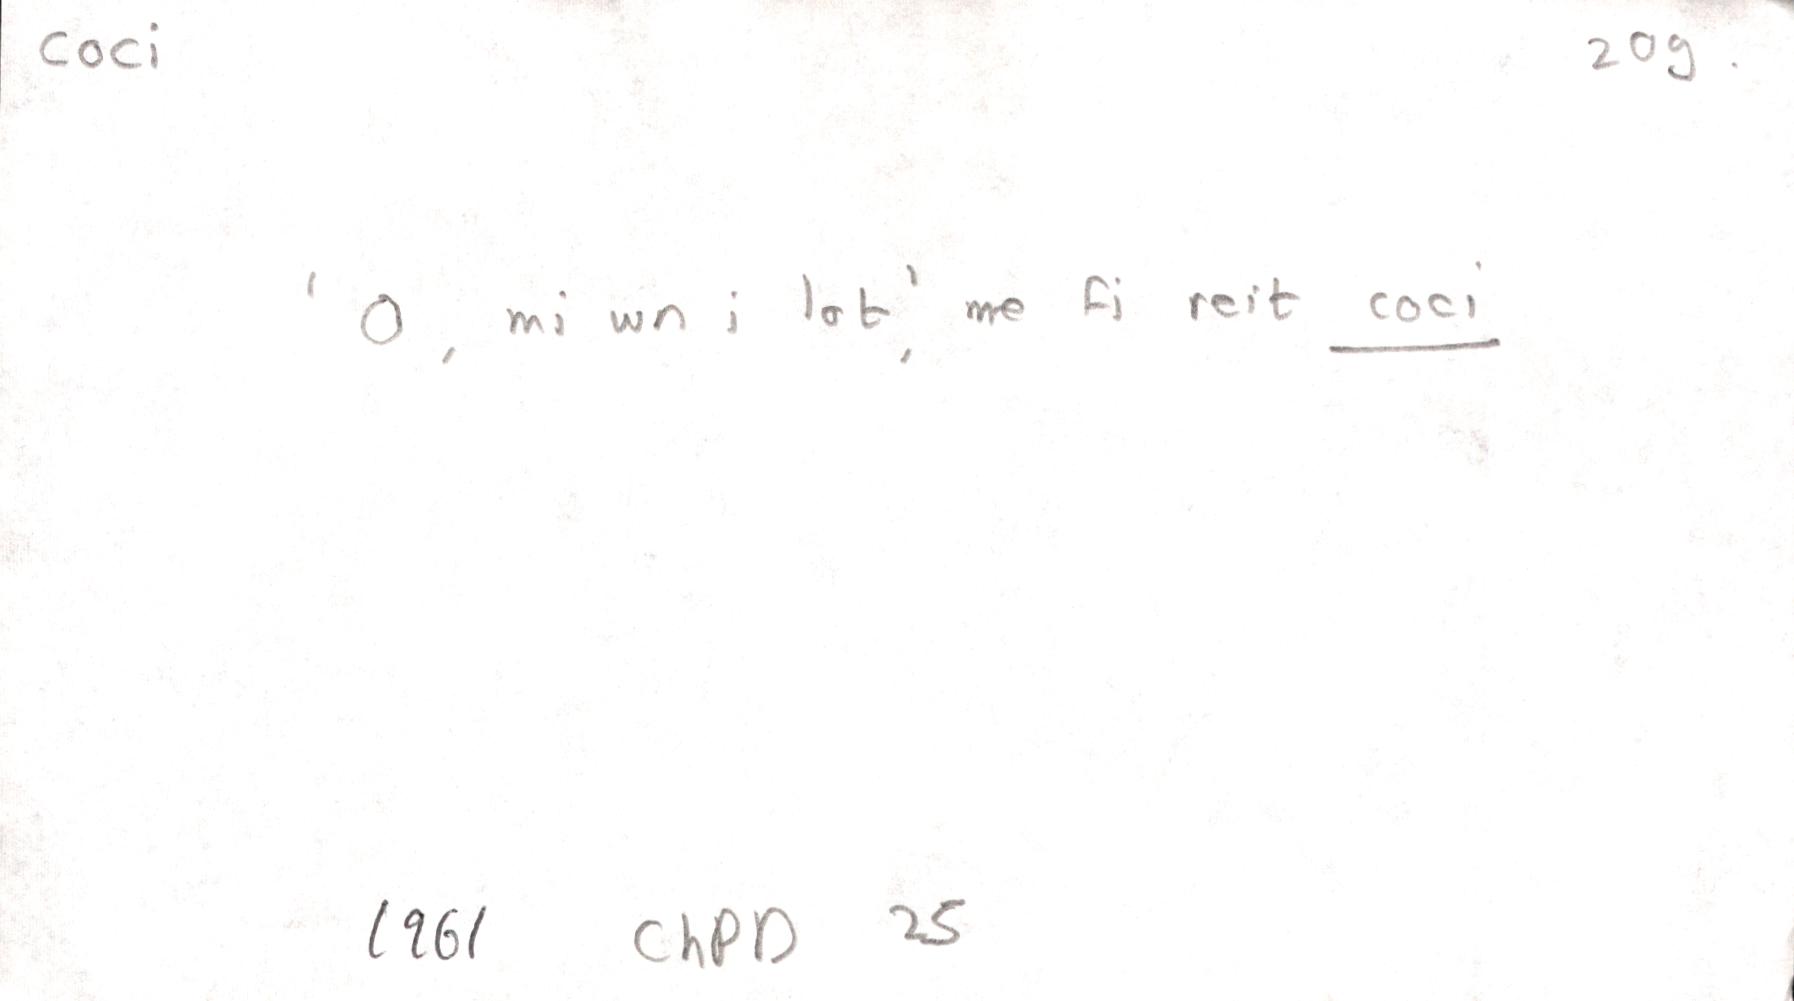 coci 20g.
'O, mi wn i lot', me fi reit coci
1961 ChPD 25